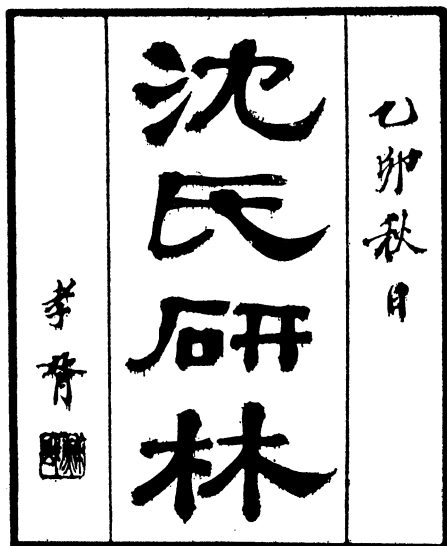 乙卯秋日
沈氏研林
孝胥